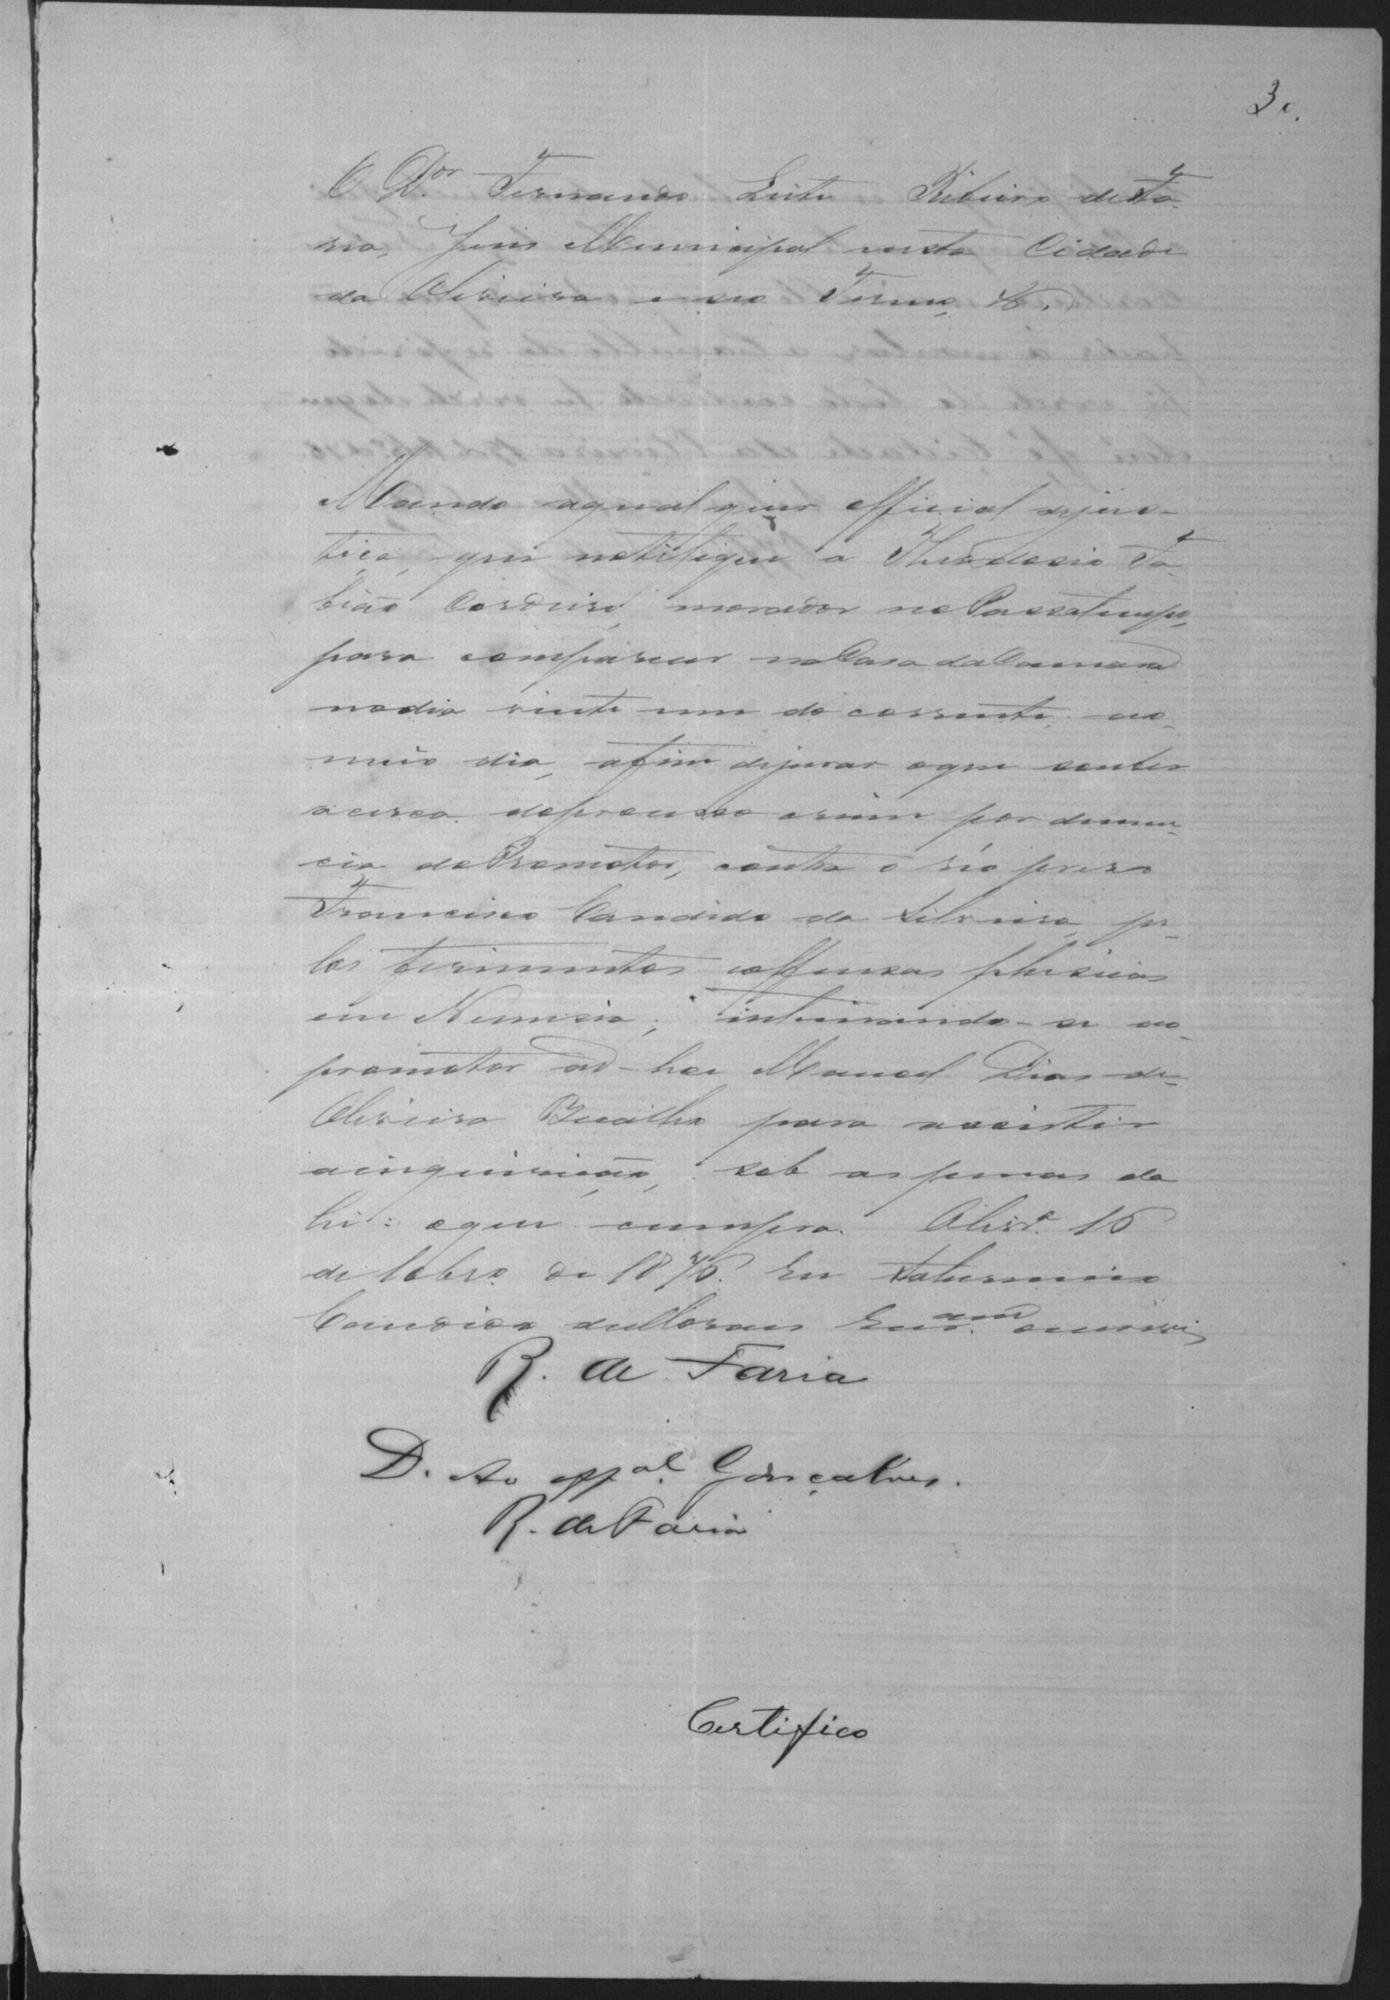 3
O D.or Fernando Leite Ribeiro de Fa-
ria, Juis Municipal nesta Cidade
da Oliveira e seo Termo, &.
Mando aqualquer official dejus-
tiça, que notifique a Theodosio Fa-
bião Cordeiro, morador no Passatempo,
para comparecer na Casa da Camara
nodia vinte um do corrente, ao
meio dia, afim dejurar oque souber
acerca doprocesso crime por denun-
cia do Promotor, contra o réo preso
Francisco Candido da Silveira, pe-
los ferimentos e offensas phisicas
em Nemesia; intimando-se ao
promotor ad-hoc Manoel Dias de
Oliveira para assistir
ainquirição, sob as penas da
lei: oque cumpra. Olivr.a 16
de 8bro de 1876. Eu Saturnino
de Moraes Escr. am escrevi
R. de Faria
D. Ao offal. Gonçalves.
R. de Faria
Certifico